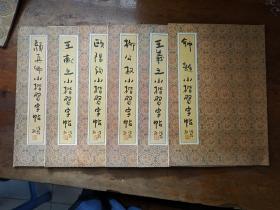 钟繇小楷習字帖
王羲之小楷習字帖
柳公权小楷習字帖
欧陽询小楷習字帖
王献之小楷習字帖
颜真卿小楷習字帖